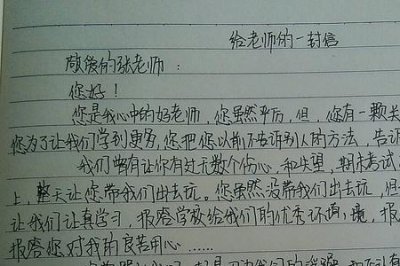 给老师的一封信
敬爱的张老师：
您好！
您是我心中的好老师，您虽然平凡，但，您有一颗关
您为了让我们学到更多，您把您以前不告诉别人的方法，告诉
我们曾有让你有过无数个伤心，和失望，期末考试
上，整天让您带我们出去玩。您虽然没带我们出去玩，但
让我们认真学习，报答学校给我们的优秀环境，报
报答您对我的良苦用心……